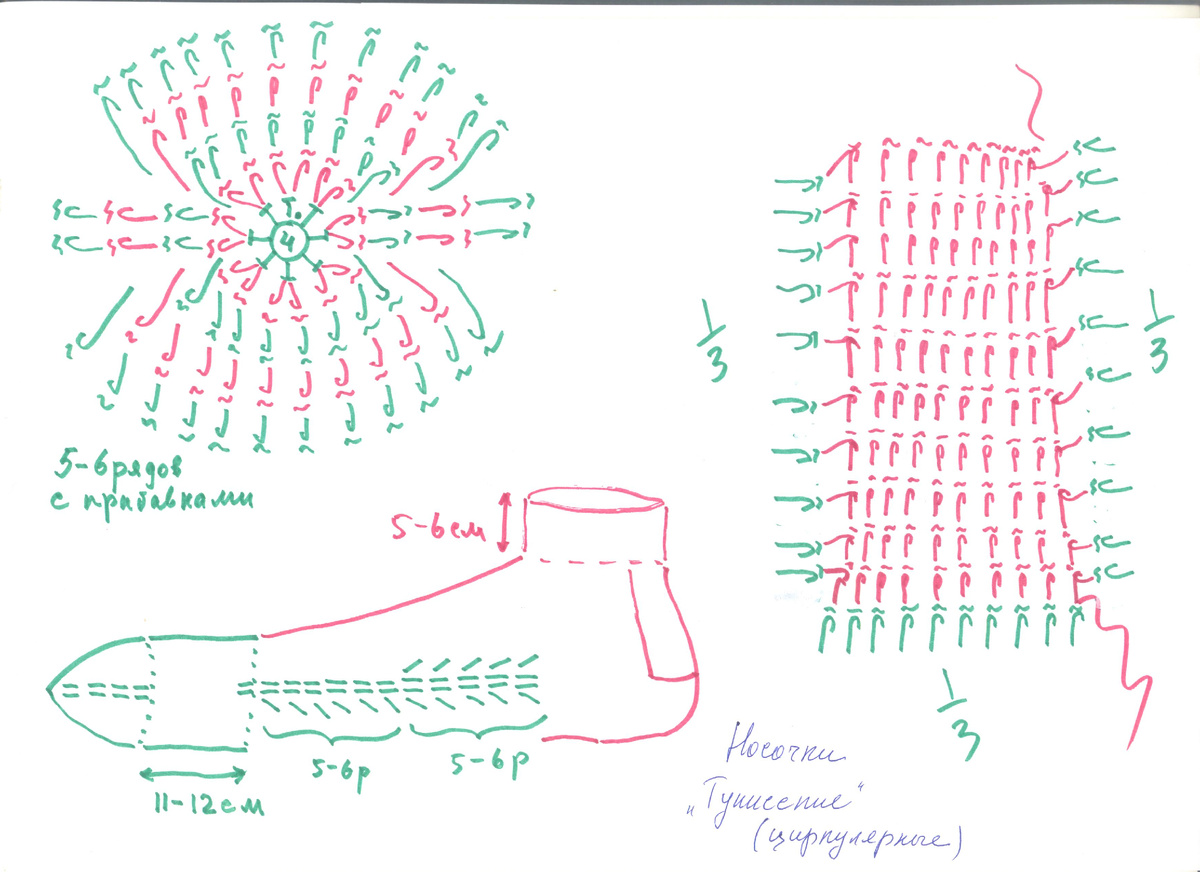 Т.
4
5-6 рядов
с прибавками
5-6 см
11-12 см
5-6 р
5-6 р
1/3
1/3
1/3
Носочки
„Тунисские“
(циркулярные)